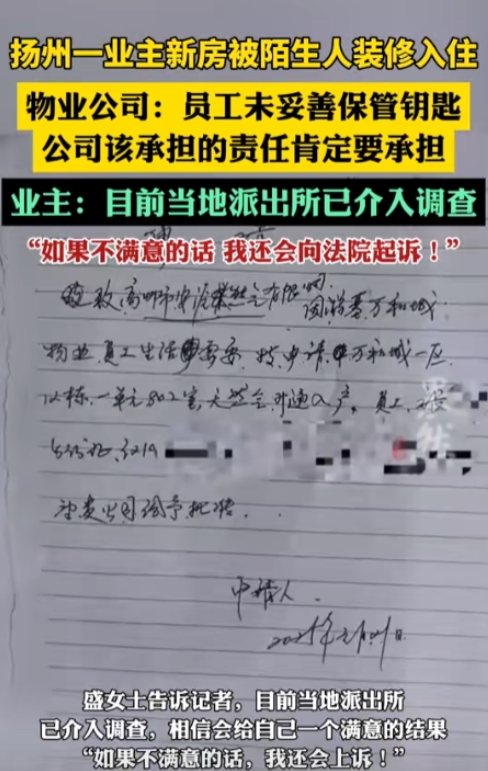 扬州一业主新房被陌生人装修入住
物业公司：员工未妥善保管钥匙
公司该承担的责任肯定要承担
业主：目前当地派出所已介入调查
“如果不满意的话 我还会向法院起诉！”
致高邮市 有限 因 万和城
物业员工生活 需要 特申请 万和城一区
栋一单元802室，天然 开通 户。员工
贵公司给予批准.
申请人.
盛女士告诉记者，目前当地派出所
已介入调查，相信会给自己一个满意的结果
“如果不满意的话，我还会上诉！”